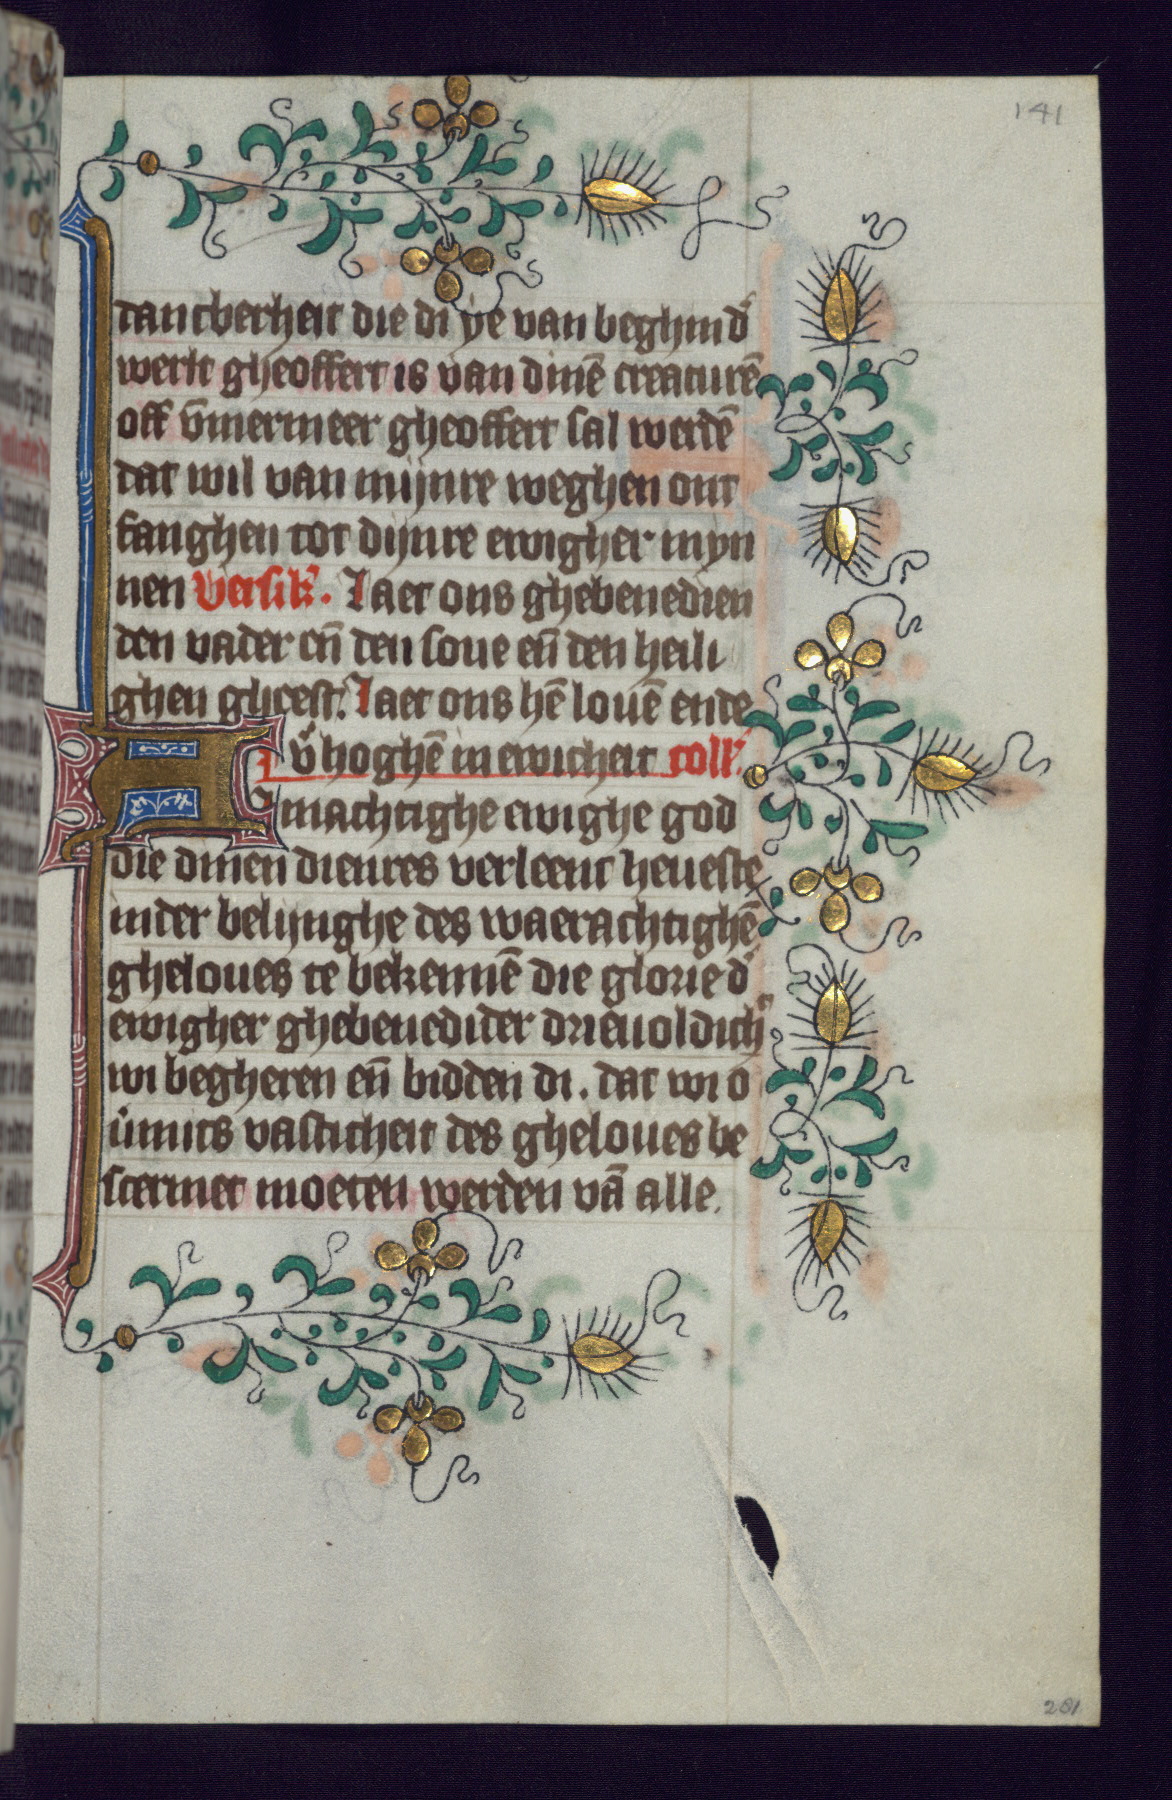 141
dancberheit die di ye van beghind'
werlt gheoffert is van dinē creaturē
off v̄mermeer gheoffert sal werdē
dat wil van mijnre weghen ont
fanghen tot dijnre ewigher myn
nen Versik'. Laet ons ghebenedien
den vader eñ den sone eñ den heili
ghen gheest. Laet ons hē louē ende
v'hoghē in ewicheit coll'.
Almachtighe ewighe god
die dinen dienres verleent heueste
inder belijnghe des waerachtighē
gheloues te bekennē die glorie d'
ewigher ghebenedider drieuoldich
wi begheren eñ bidden di. dat wi o
u'mits vasticheit des gheloues be
scermet moeten werden vā alle.
201